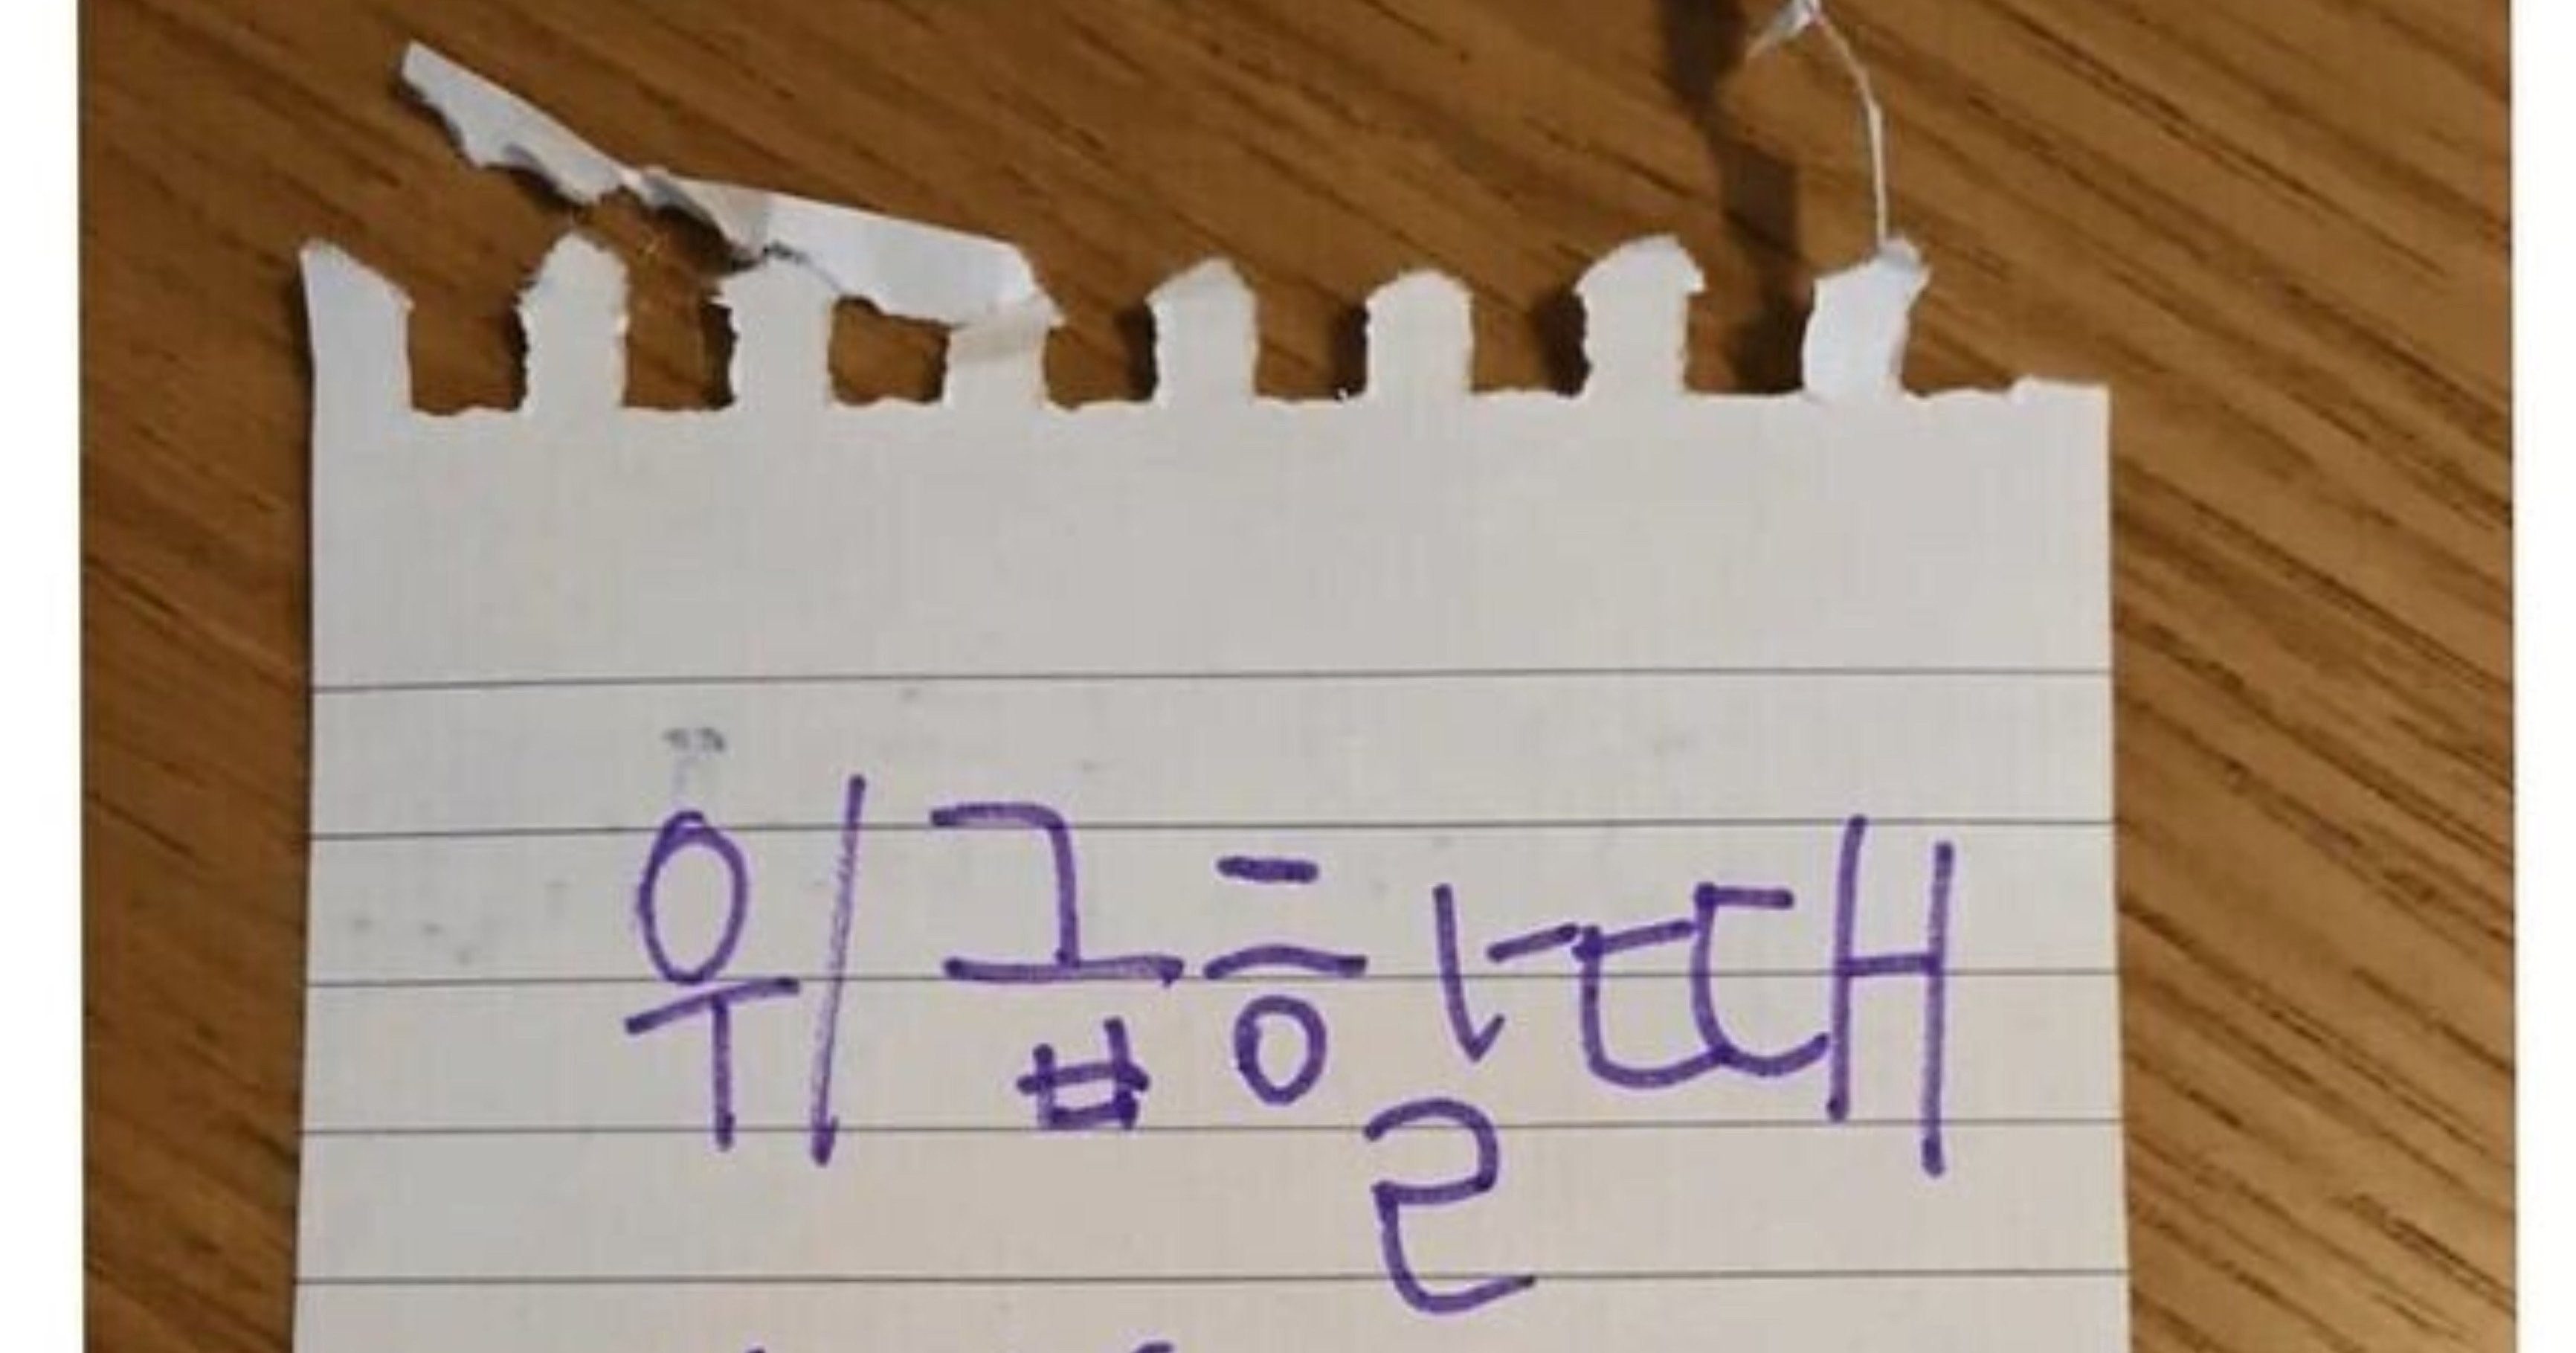 위급할때